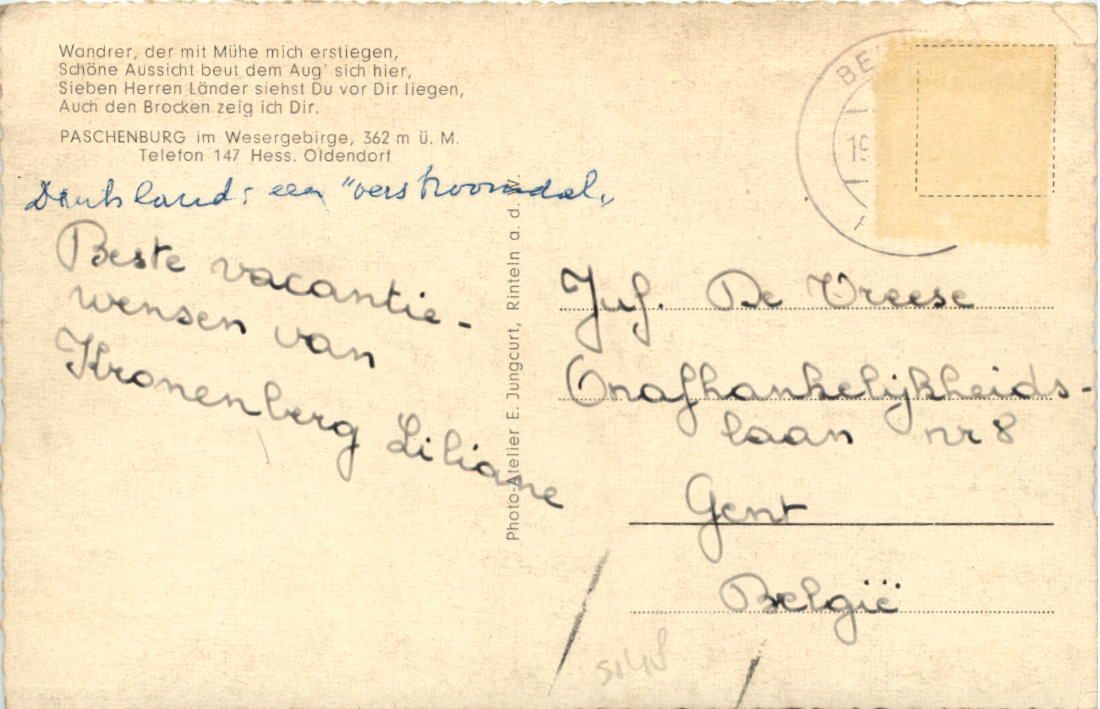 Wandrer, der mit Mühe mich erstiegen,
Schöne Aussicht beut dem Aug' sich hier,
Sieben Herren Länder siehst Du vor Dir liegen,
Auch den Brocken zeig ich Dir.
PASCHENBURG im Wesergebirge, 362 m ü. M.
Telefon 147 Hess. Oldendorf
een "verstroomdal"
Beste vacantie-
wensen van
Kronenberg Liliane
Photo-Atelier E. Jungcurt, Rinteln a. d. W.
BE
19
Juf. De Vreese
Onafhankelijkheids-
laan nr 8
Gent
België